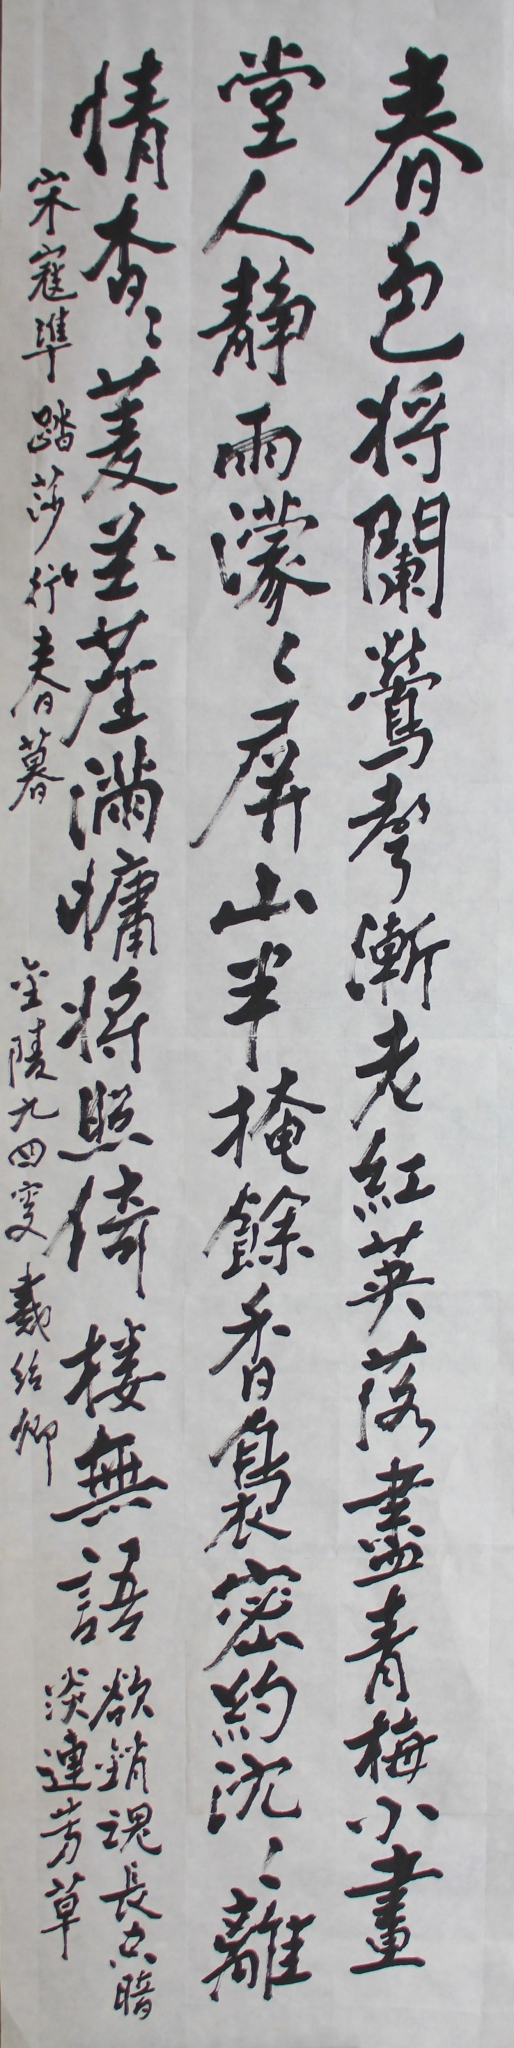 春色将闌鶯聲漸老紅英落盡青梅小畫
堂人靜雨濛〻屏山半掩餘香裊密約沈〻離
情杳〻菱花塵滿慵将照倚樓無語
欲銷魂長空暗
淡連芳草
宋寇準踏莎行春暮
金陵九四叟戴绍卿